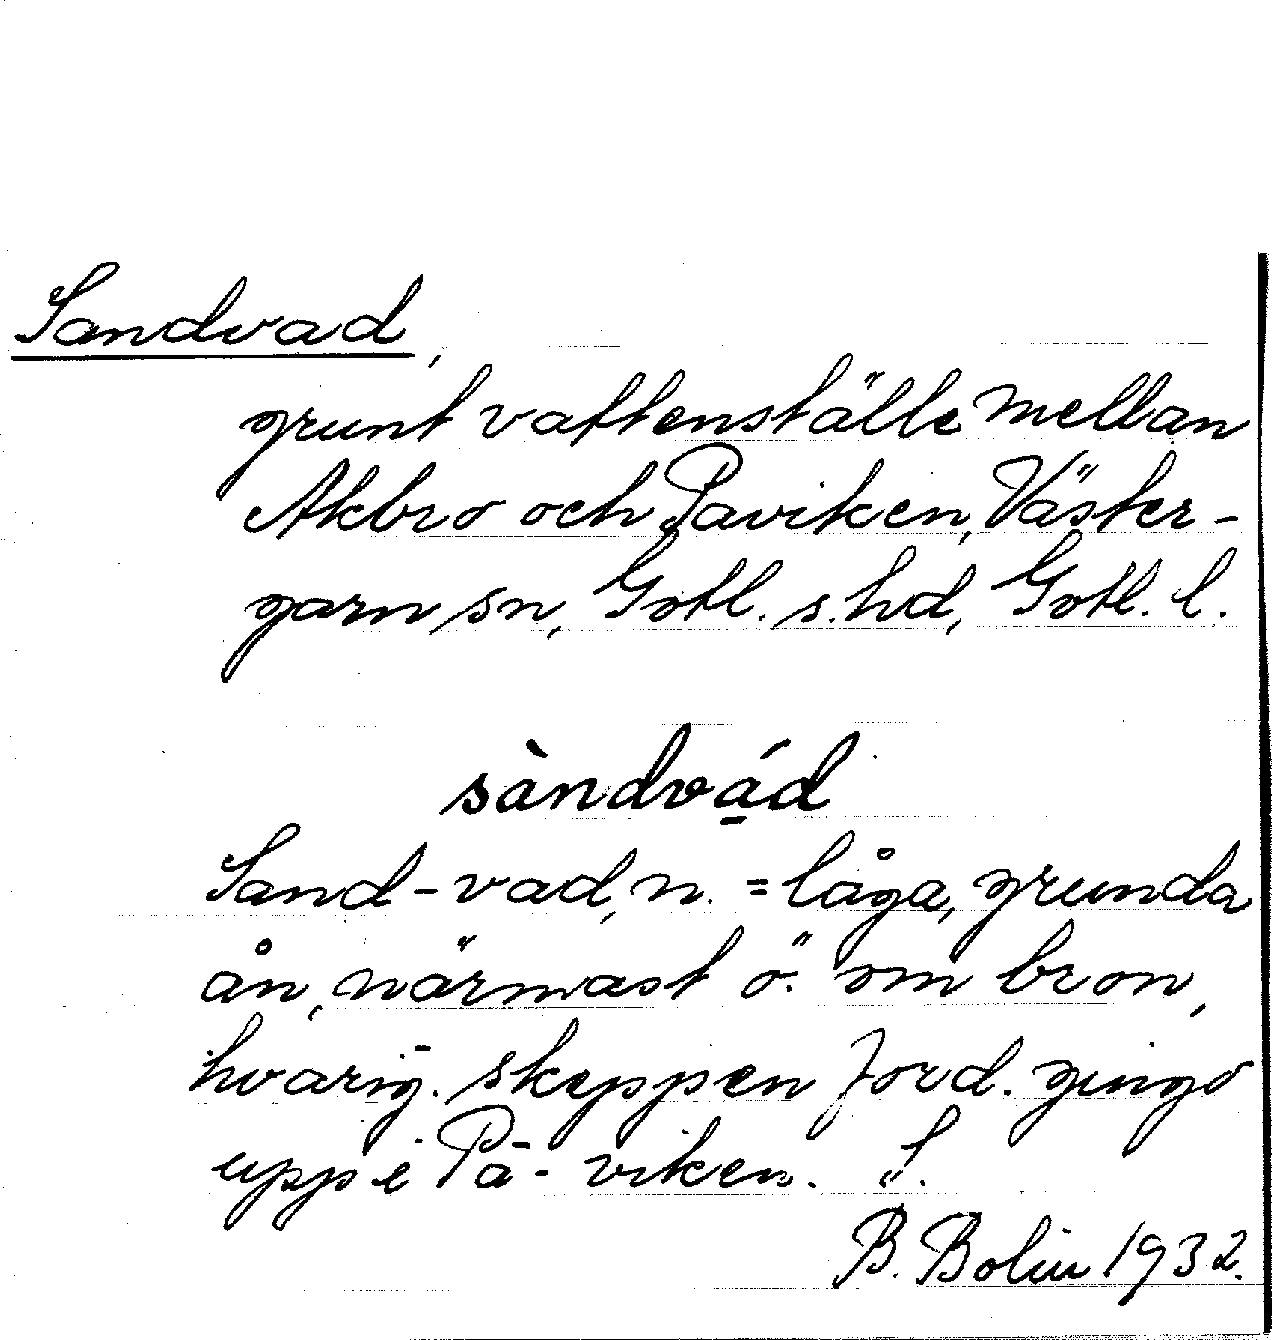 Sandvad,
grunt vattenställe mellan
Akbro och Paviken, Väster-
garn sn, Gotl. s. hd, Gotl. l.
sàndvá̱d
Sand-vad, n. = låga, grunda
ån, närmast ö. om bron,
skeppen ford. gingo
upp i Pā-viken.
B. Bolin 1932.